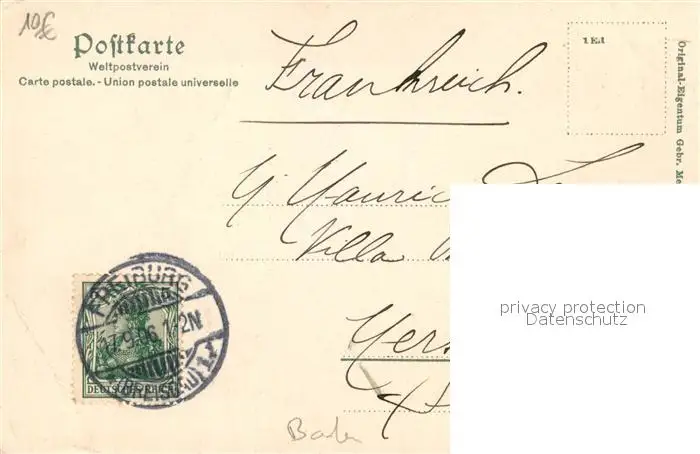 10€
Postkarte
Weltpostverein
Carte postale. - Union postale universelle
Frankreich.
1 Ed1
Original-Eigentum Gebr. Me
Villa
privacy protection
Datenschutz
FREIBURG
17.9.06 1-2N
(BREISGAU)
DEUTSCHES REICH
Baden